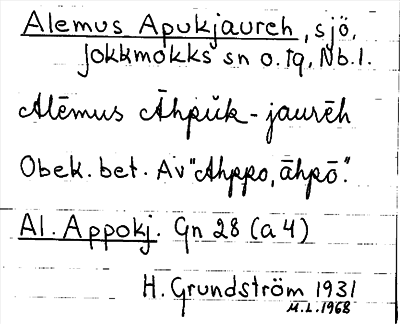 Alemus Apukjaureh, sjö,
Jokkmokks sn o. tg, Nb. l.
Alēmus Āhpŭk-jaurēh
Obek. bet. Av "Ahppo, āhpō".
Al. Appokj. Gn 28 (a 4)
H. Grundström 1931
M.L. 1968